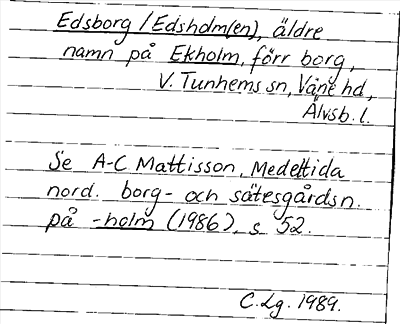 Edsborg / Edsholm(en), äldre
namn på Ekholm, förr borg,
V. Tunhems sn, Väne hd,
Älvsb. l.
Se A-C Mattisson, Medeltida
nord. borg- och sätesgårdsn.
på -holm (1986), s 52.
C. Lg. 1989.